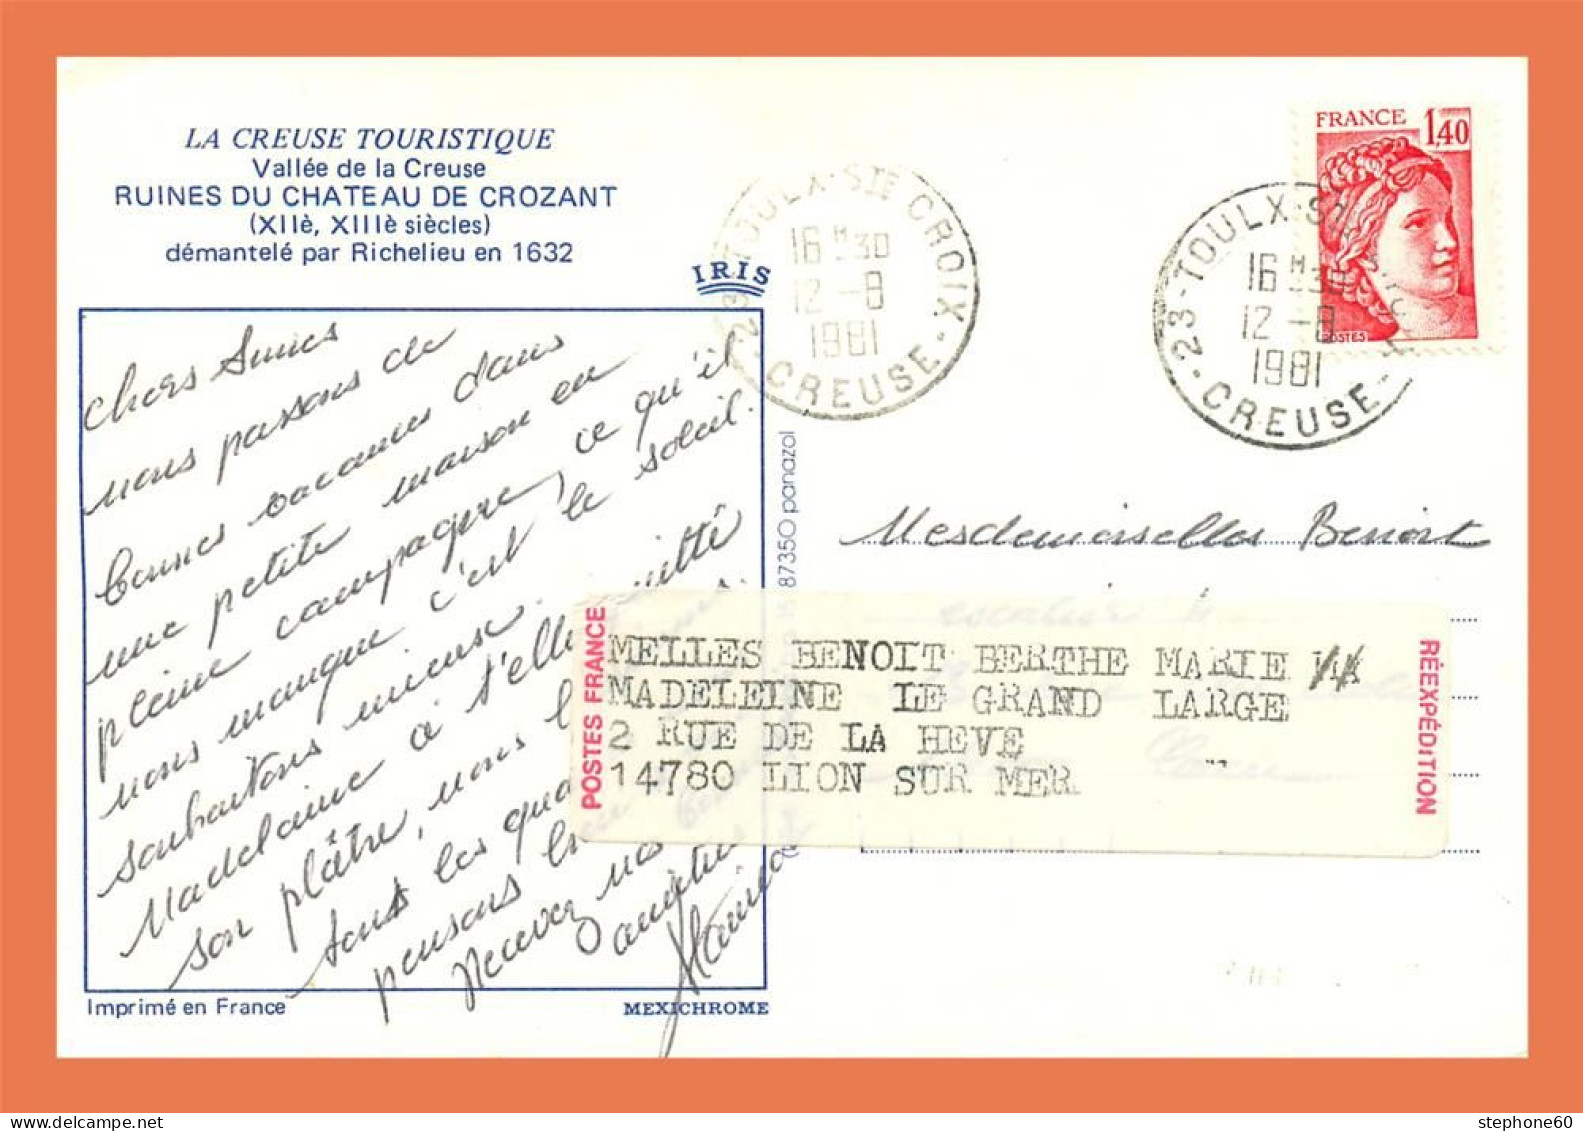 LA CREUSE TOURISTIQUE
Vallée de la Creuse
RUINES DU CHATEAU DE CROZANT
(XIIè, XIIIè siècles)
démantelé par Richelieu en 1632
IRIS
chers Amies
nous passons de
bonnes vacances dans
une petite maison en
pleine campagne, ce qu'il
nous manque c'est le soleil.
souhaitons mieux.
Madelaine a t'elle quitté
son plâtre, nous
tous les
pensons
Recevez nos
amitiés
Imprimé en France
MEXICHROME
87350 panazol
23-TOULX-STE CROIX
16H30
12-8
1981
-CREUSE-
23-TOULX-STE CROIX
16H30
12-8
1981
-CREUSE-
FRANCE 1,40
POSTES
Mesdemoiselles Benoit
POSTES FRANCE
MELLES BENOIT BERTHE MARIE
MADELEINE LE GRAND LARGE
2 RUE DE LA HEVE
14780 LION SUR MER
RÉEXPÉDITION
stephone60